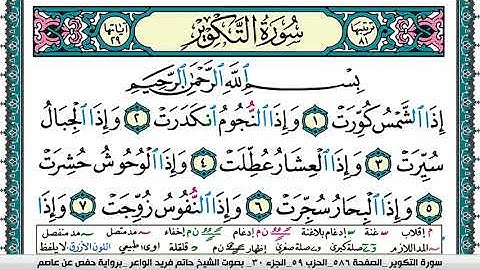 ترتيبها ٨١ سُورَةُ التَّكْوِيرِ آياتها ٢٩
بِسْمِ ٱللَّهِ ٱلرَّحْمَٰنِ ٱلرَّحِيمِ
إِذَا ٱلشَّمْسُ كُوِّرَتْ ١ وَإِذَا ٱلنُّجُومُ ٱنكَدَرَتْ ٢ وَإِذَا ٱلْجِبَالُ
سُيِّرَتْ ٣ وَإِذَا ٱلْعِشَارُ عُطِّلَتْ ٤ وَإِذَا ٱلْوُحُوشُ حُشِرَتْ
٥ وَإِذَا ٱلْبِحَارُ سُجِّرَتْ ٦ وَإِذَا ٱلنُّفُوسُ زُوِّجَتْ ٧ وَإِذَا
م إقلاب غنة إدغام بلاغنة إدغام إخفاء مد متصل مد منفصل
المد اللازم صلة كبرى وصلة صغرى إظهار قلقلة اوى طبيعي اللون الأزرق لا يلفظ
سورة التكوير_الصفحة ٥٨٦_الحزب ٥٩_الجزء ٣٠_بصوت الشيخ حاتم فريد الواعر_برواية حفص عن عاصم